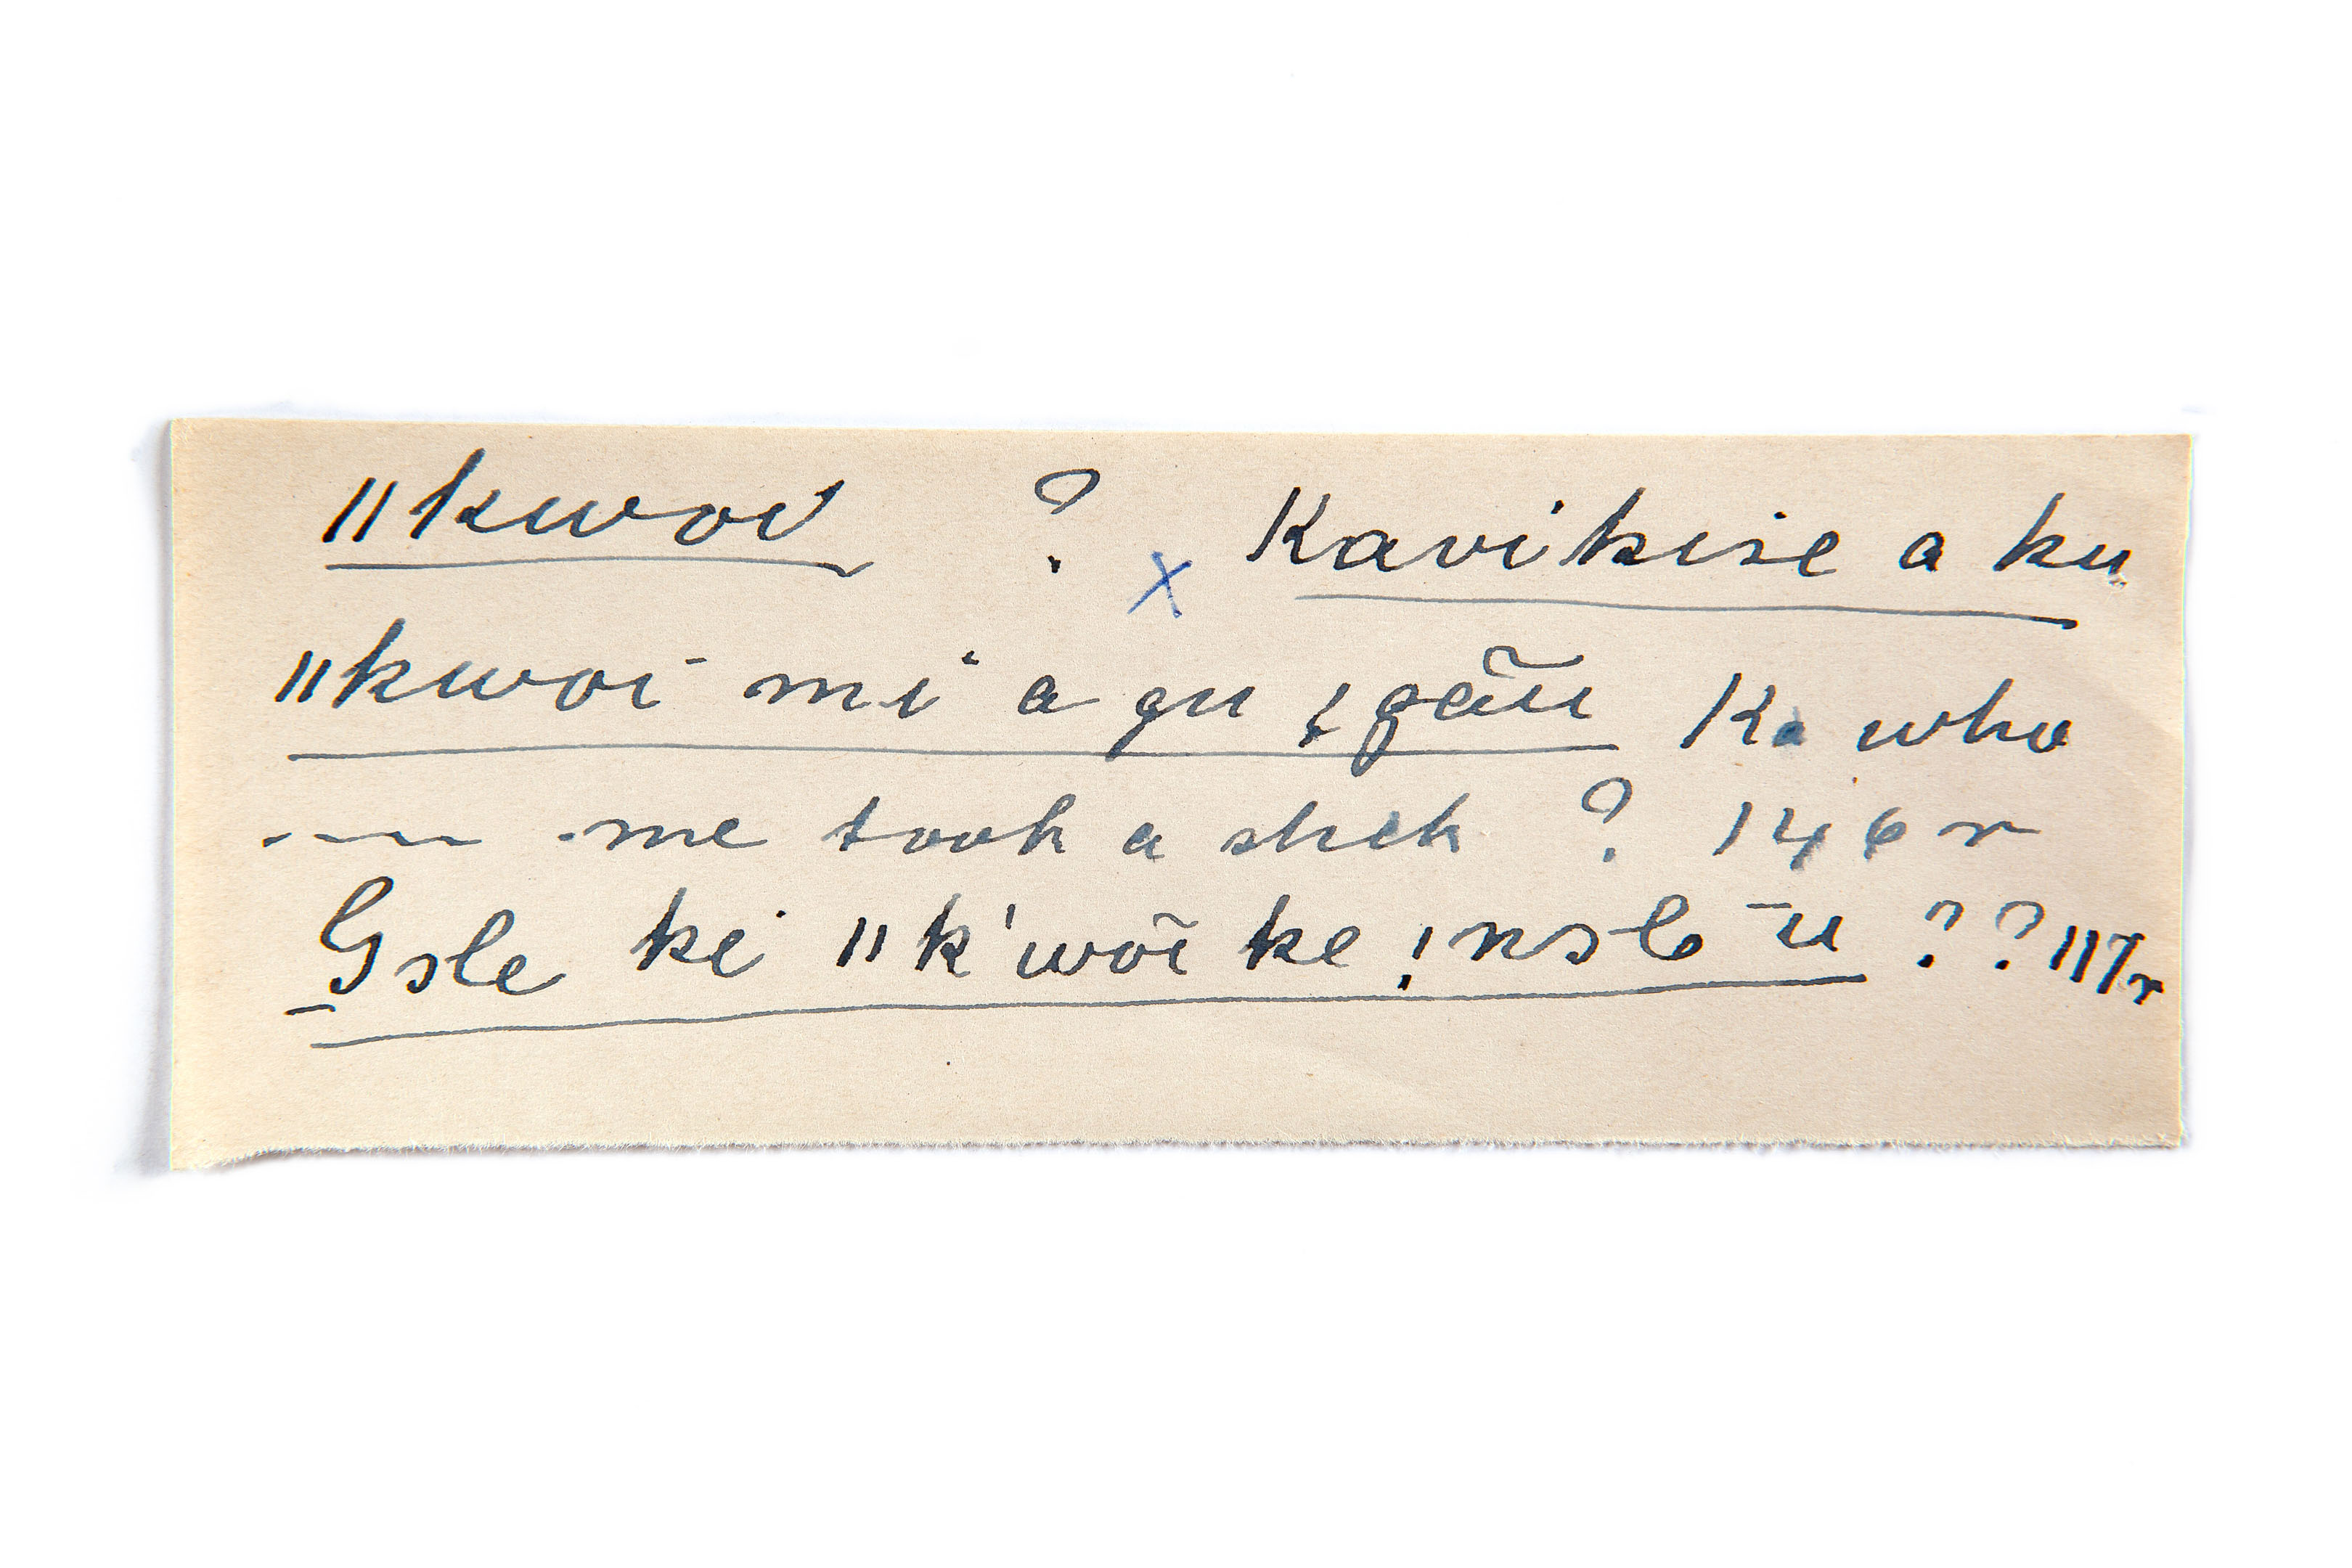 ǁkwoi ? x Kavikise a ku
ǁkwoi mi a gu ɟgãũ Ka who
---- me took a stick ? 146 r
Gsle ki ǁk'wõi ke !nsle ū ?? 117r